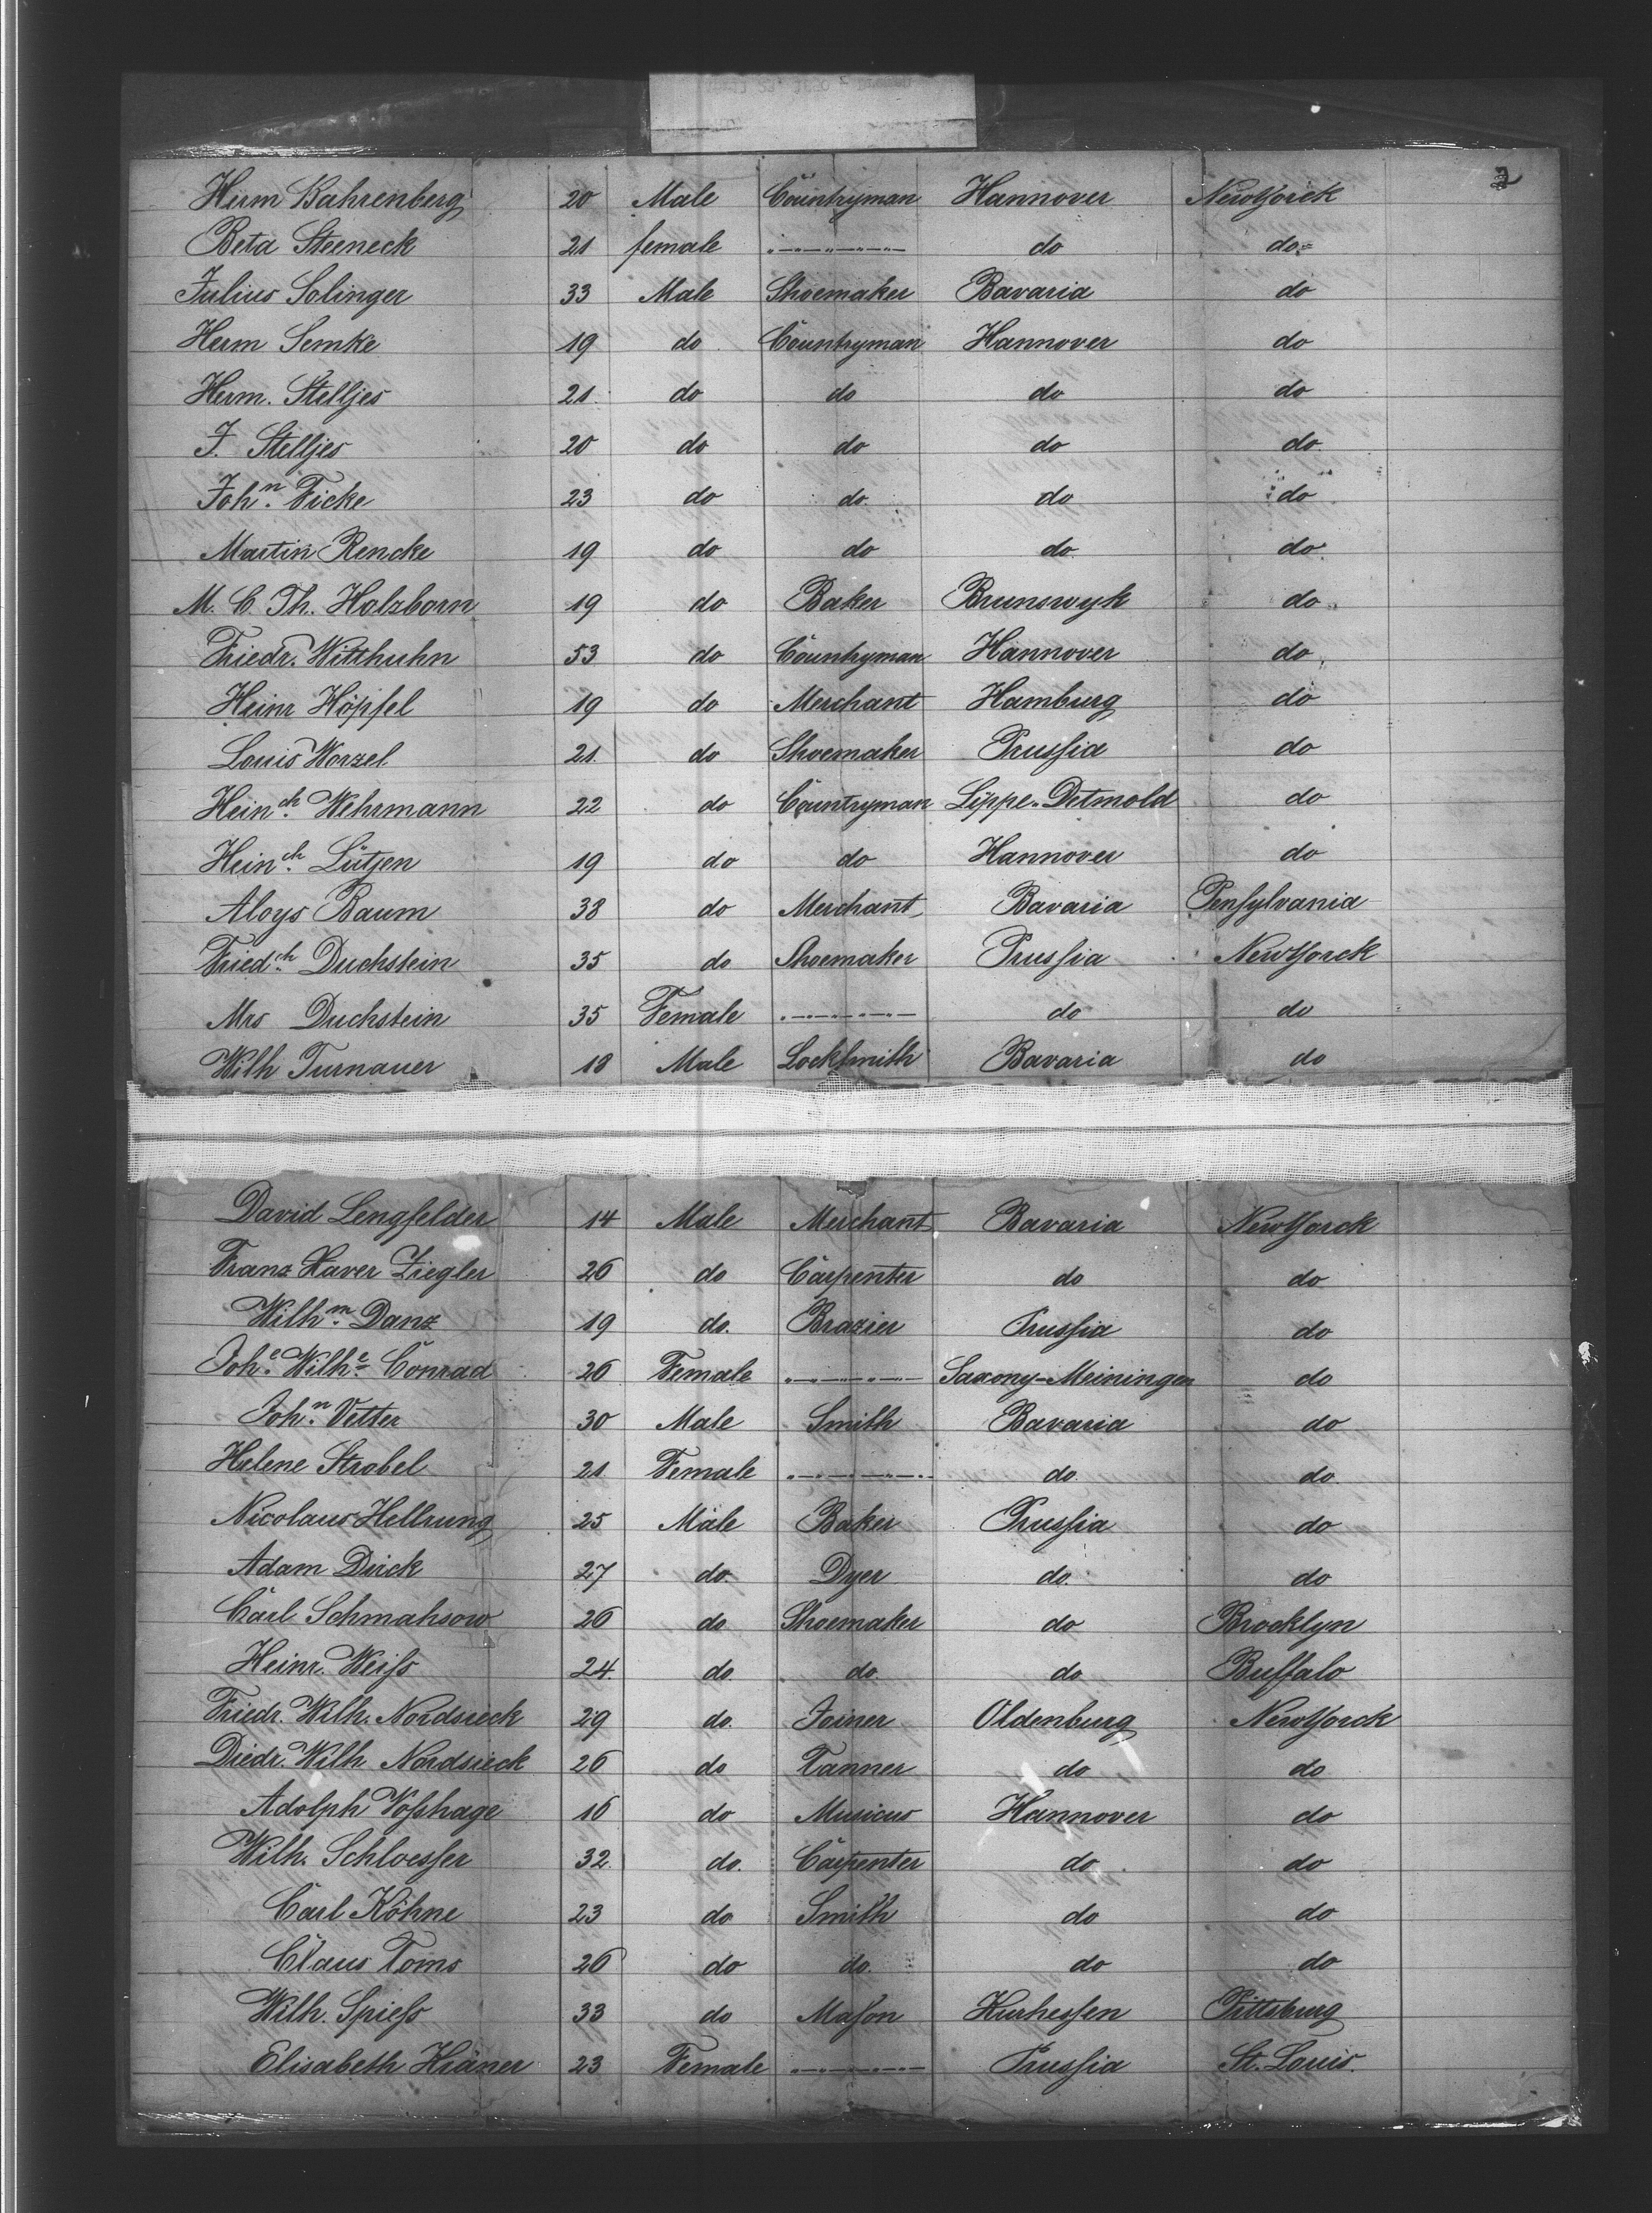 2
Herm Bahrenberg 20 Male Countryman Hannover NewYorck
Beta Steeneck 21 female "—"—"—" do do
Julius Solinger 33 Male Shoemaker Bavaria do
Herm Semke 19 do Countryman Hannover do
Herm. Stelljes 21 do do do do
J. Stelljes 20 do do do do
Joh.n Ficke 23 do do do do
Martin Rencke 19 do do do do
M. C. Th. Holzborn 19 do Baker Brunswyk do
Friedr. Witthuhn 53 do Countryman Hannover do
Heinr Höpfel 19 do Merchant Hamburg do
Louis Worzel 21 do Shoemaker Prussia do
Hein.ch Wehrmann 22 do Countryman Lippe-Detmold do
Hein.ch Lütjen 19 do do Hannover do
Aloys Baum 38 do Merchant Bavaria Pensylvania
Fried.ch Duchstein 35 do Shoemaker Prussia NewYorck
Mrs Duchstein 35 Female "—"—"—" do do
Wilh Turnauer 18 Male Locksmith Bavaria do
David Lengfelder 14 Male Merchant Bavaria NewYorck
Franz Xaver Ziegler 26 do Carpenter do do
Wilh.m Danz 19 do. Brazier Prussia do
Joh.e Wilh.e Conrad 26 Female "—"—"—" Saxony-Meiningen do
Joh.n Vetter 30 Male Smith Bavaria do
Helene Strobel 21 Female "—"—"—" do do
Nicolaus Hellrung 25 Male Baker Prussia do
Adam Dirck 27 do. Dyer do. do
Carl Schmahsow 26 do Shoemaker do Brooklyn
Heinr. Weiss 24 do. do. do Buffalo
Friedr. Wilh. Nordsieck 29 do. Joiner Oldenburg NewYorck
Diedr. Wilh Nordsieck 26 do Tanner do do
Adolph Vosshage 16 do Musicus Hannover do
Wilh. Schloesser 32 do. Carpenter do do
Carl Köhne 23 do Smith do do
Claus Toms 26 do do. do do
Wilh. Spiess 33 do Mason Kurhessen Pittsburg
Elisabeth 23 Female "—"—"—" Prussia St. Louis